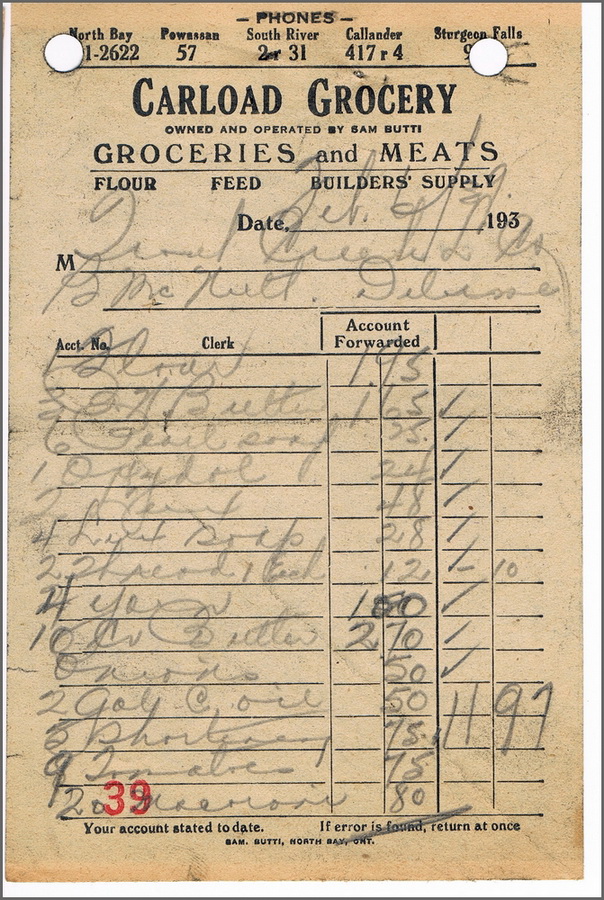 — PHONES —
North Bay Powassan South River Callander Sturgeon Falls
1-2622 57 2 r 31 417 r 4 9
CARLOAD GROCERY
OWNED AND OPERATED BY SAM BUTTI
GROCERIES and MEATS
FLOUR FEED BUILDERS' SUPPLY
Date, Feb. 193
M
B McNutt.
Account
Forwarded
Acct. No. Clerk
1 Flour 1.95
Butter 1
6 Pearl soap 25 ✓
1 Oxydol 24 ✓
2 48 ✓
4 Lux Soap 28 ✓
2 Thread 12 – 10
4 Yarn 1 60 ✓
10 Cr Butter 2 70 ✓
Onions 50 ✓
2 Gal C. oil 50
5 Shortening 75
9 Tomatoes 75
11 97
20 Macaroni 80
39
Your account stated to date. If error is found, return at once
SAM. BUTTI, NORTH BAY, ONT.